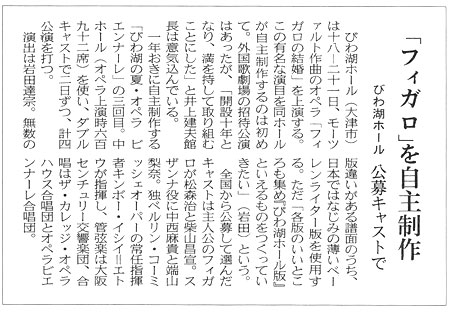 「フィガロ」を自主制作
びわ湖ホール 公募キャストで
びわ湖ホール（大津市）
は十八―二十一日、モーツ
ァルト作曲のオペラ「フィ
ガロの結婚」を上演する。
この有名な演目を同ホール
が自主制作するのは初め
て。外国歌劇場の招待公演
はあったが、「開設十年と
なり、満を持して取り組む
ことにした」と井上建夫館
長は意気込んでいる。
一年おきに自主制作する
「びわ湖の夏・オペラ ビ
エンナーレ」の三回目。中
ホール（オペラ上演時六百
九十二席）を使い、ダブル
キャストで二日ずつ、計四
公演を打つ。
演出は岩田達宗。無数の
版違いがある譜面のうち、
日本ではなじみの薄いベー
レンライター版を使用す
る。ただ「各版のいいとこ
ろも集め『びわ湖ホール版』
といえるものをつくってい
きたい」（岩田）という。
全国から公募して選んだ
キャストは主人公のフィガ
ロが松森治と柴山昌宣。ス
ザンナ役に中西麻貴と端山
梨奈。独ベルリン・コーミ
ッシェオーパーの常任指揮
者キンボー・イシイ＝エト
ウが指揮し、管弦楽は大阪
センチュリー交響楽団、合
唱はザ・カレッジ・オペラ
ハウス合唱団とオペラビエ
ンナーレ合唱団。